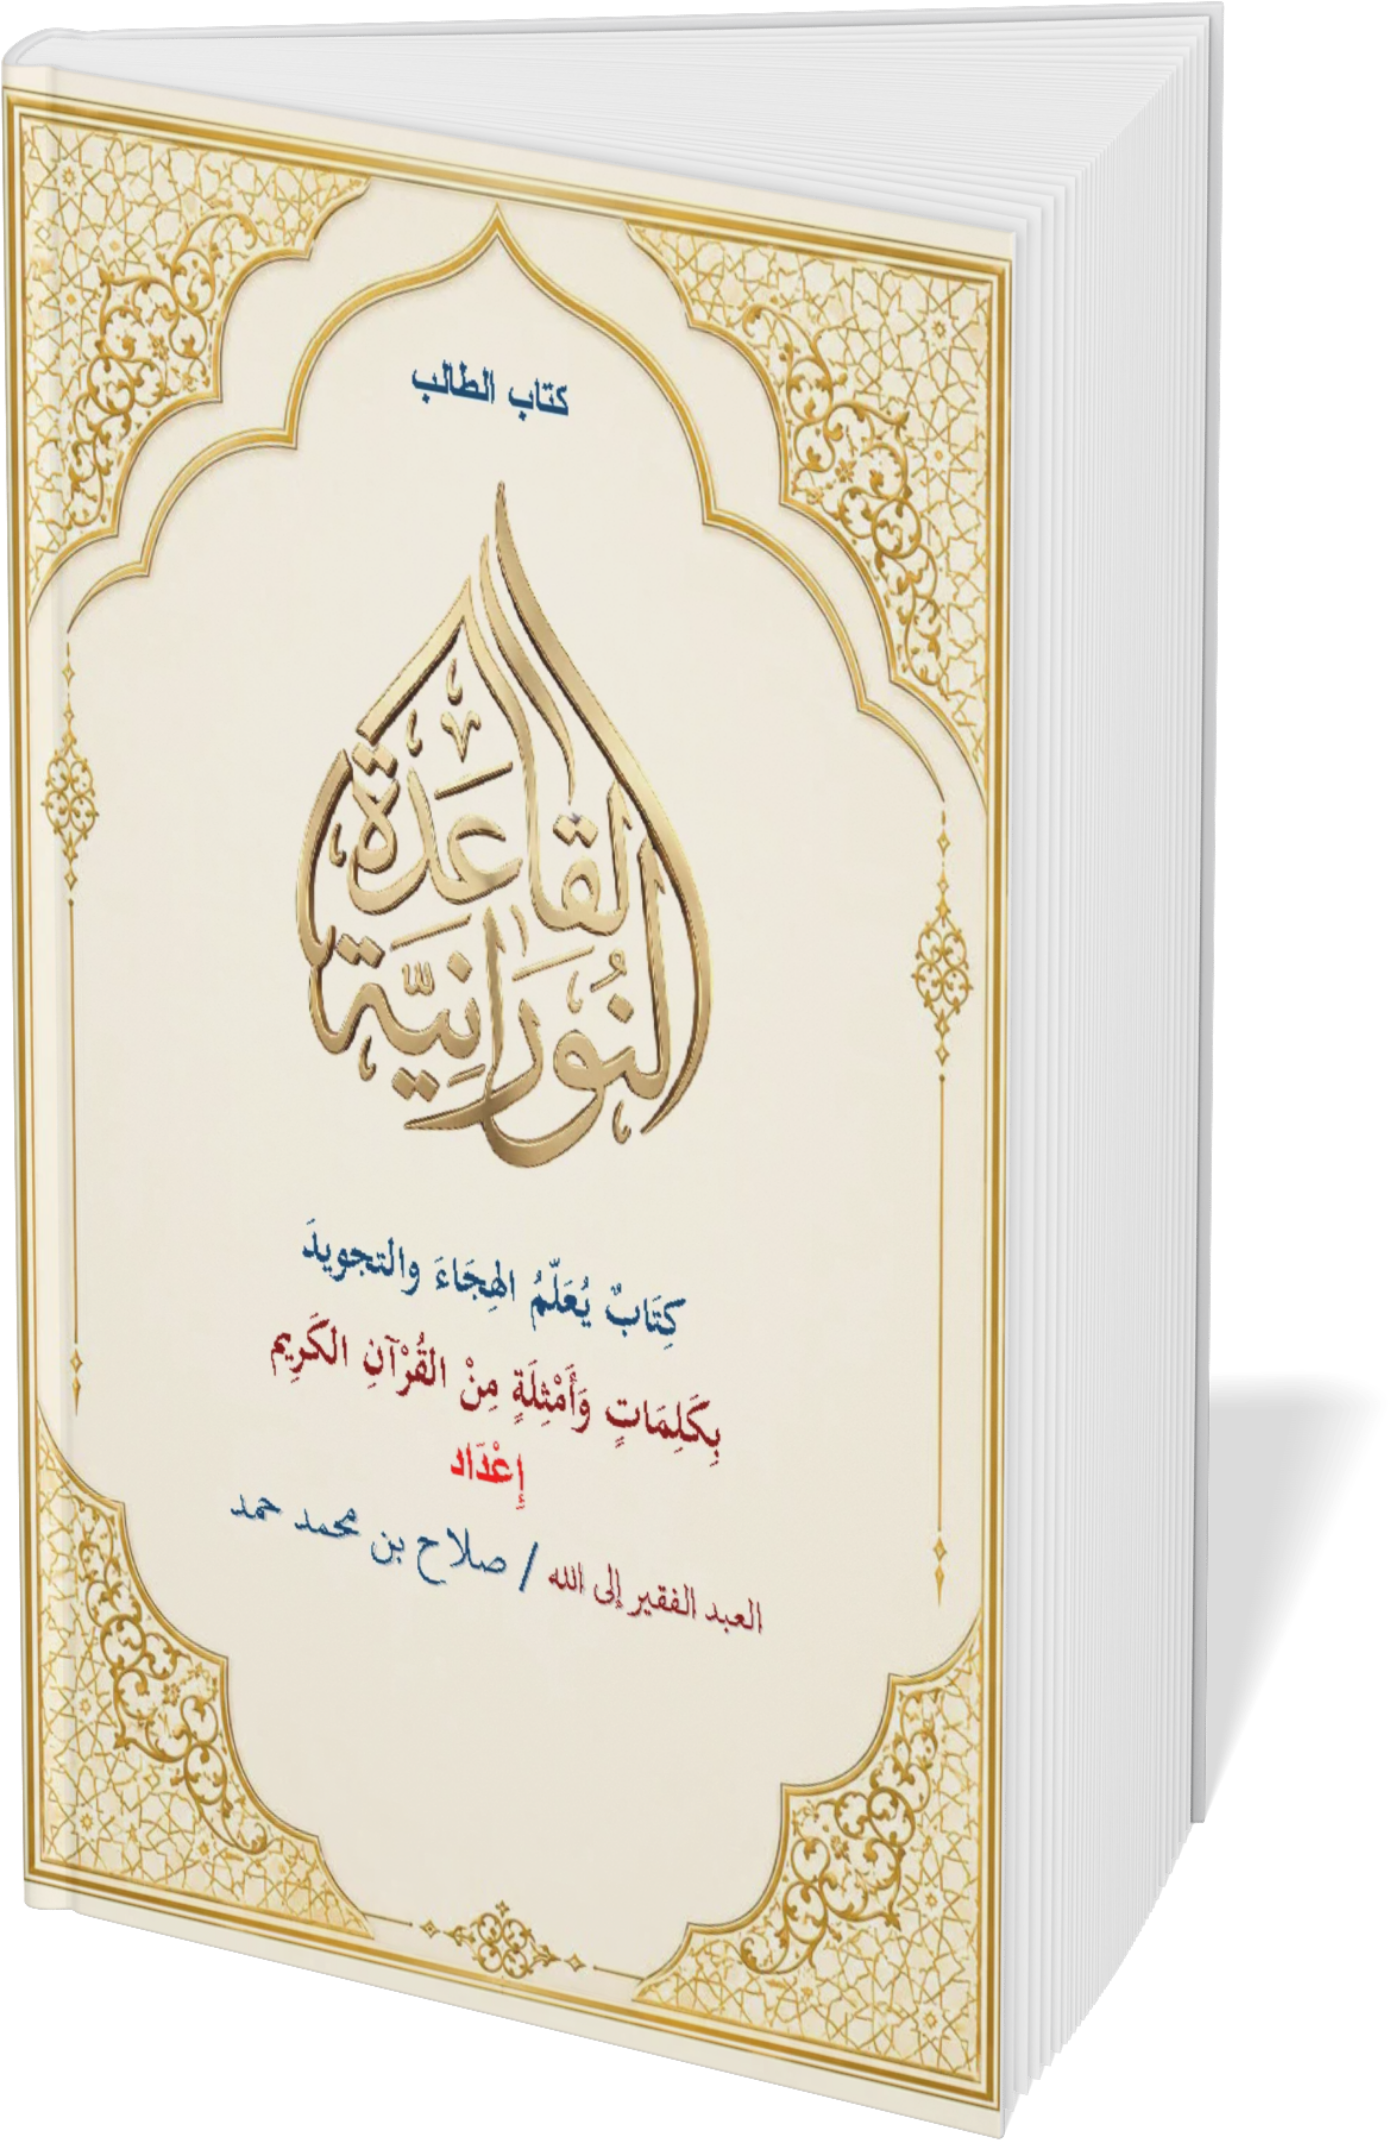 كتاب الطالب
القَاعِدَة
النُورَانِيَّة
كِتَابٌ يُعَلِّمُ الهِجَاءَ والتجويدَ
بِكَلِمَاتٍ وَأَمْثِلَةٍ مِنْ القُرْآنِ الكَرِيم
إِعْدَاد
العبد الفقير إلى الله / صلاح بن محمد حمد